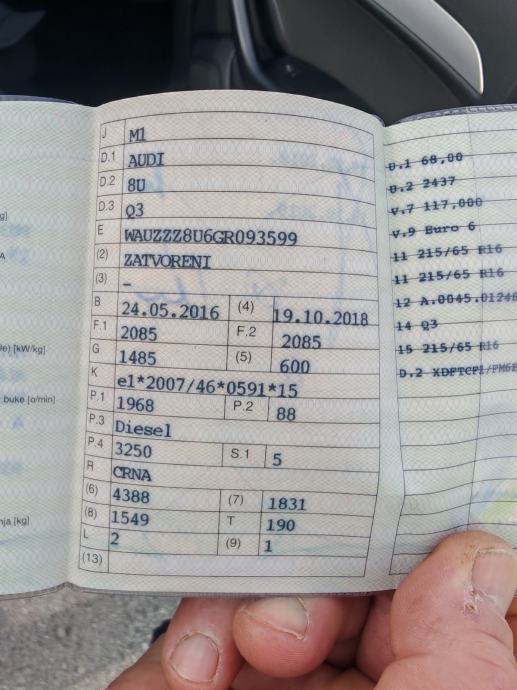 g]
A
le) [kW/kg]
buke [o/min]
nja [kg]
J M1
D.1 AUDI
D.2 8U
D.3 Q3
E WAUZZZ8U6GR093599
(2) ZATVORENI
(3) -
B 24.05.2016 (4) 19.10.2018
F.1 2085 F.2 2085
G 1485 (5) 600
K e1*2007/46*0591*15
P.1 1968 P.2 88
P.3 Diesel
P.4 3250 S.1 5
R CRNA
(6) 4388 (7) 1831
(8) 1549 T 190
L 2 (9) 1
(13)
U.1 68,00
U.2 2437
V.7 117,000
V.9 Euro 6
11 215/65 R16
11 215/65 R16
12 A.0045.01246
14 Q3
15 215/65 R16
D.2 XDFTCF1/